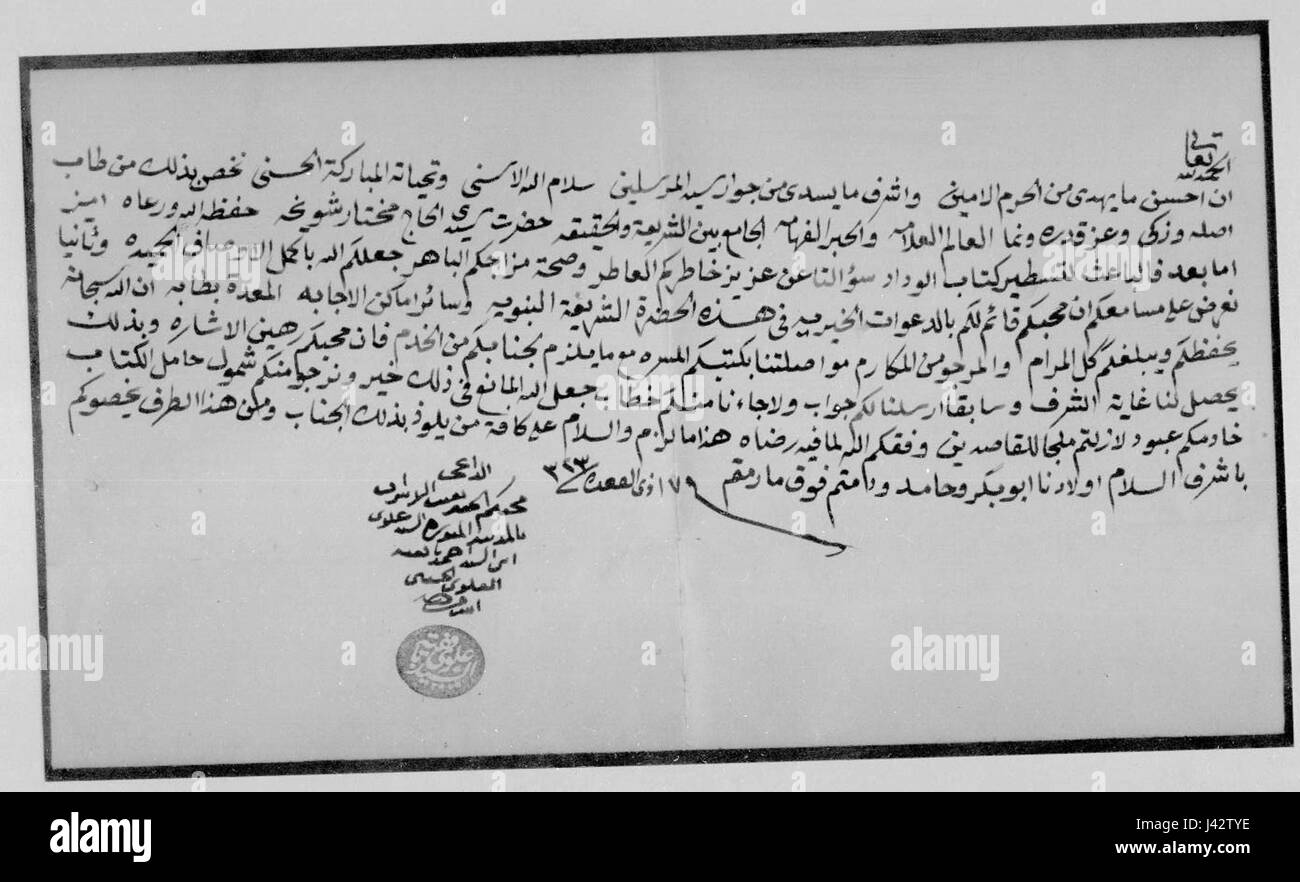 الحمد لله تعالى
ان احسن ما يهدى من الحرم الامين واشرف ما يسدى من جوار سيد المرسلين سلام الله الاسنى وتحياته المباركة الحسنى نخص بذلك من طاب
اصله وزكى وعز قدره ونما العالم العلامه والحبر الفهامه الجامع بين الشريعة والحقيقه حضرت سيدي الحاج مختار شويخه حفظه الله ورعاه امين
اما بعد فالباعث لتسطير كتاب الوداد سؤالنا عن عزيز خاطركم العاطر وصحة مزاجكم الباهر جعلكم الله باكمل الاوصاف الحميده وثانيا
نعرض على مسامعكم ان محبكم قائم لكم بالدعوات الخيريه في هذه الحضرة الشريفة النبويه وسائر اماكن الاجابه المعدة بطابه ان الله سبحانه
يحفظكم ويبلغكم كل المرام والمرجو من المكارم مواصلتنا بكتبكم المسره مع ما يلزم لجنابكم من الخدم فان محبكم رهين الاشاره وبذلك
يحصل لنا غاية الشرف وسابقا ارسلنا لكم جواب ولا جاءنا منكم خطاب جعل الله المانع في ذلك خير ونرجو منكم شمول حامل الكتاب
خادمكم عبود لازلتم ملجا للقاصدين وفقكم الله لما فيه رضاه هذا ما لزم والسلام على كافة من يلوذ بذلك الجناب ومن هذا الطرف يخصوكم
باشرف السلام اولادنا ابو بكر وحامد ودامتم فوق ما رمقم ١٧ ذي القعده ٣٢٣
الداعي
محبكم
بالمدينة المنوره السيد علوي
ابن السيد احمد بافقيه
العلوي الحسيني
السيد علوي بافقيه
alamy
a
alamy stock photo
Image ID: J42TYE
www.alamy.com